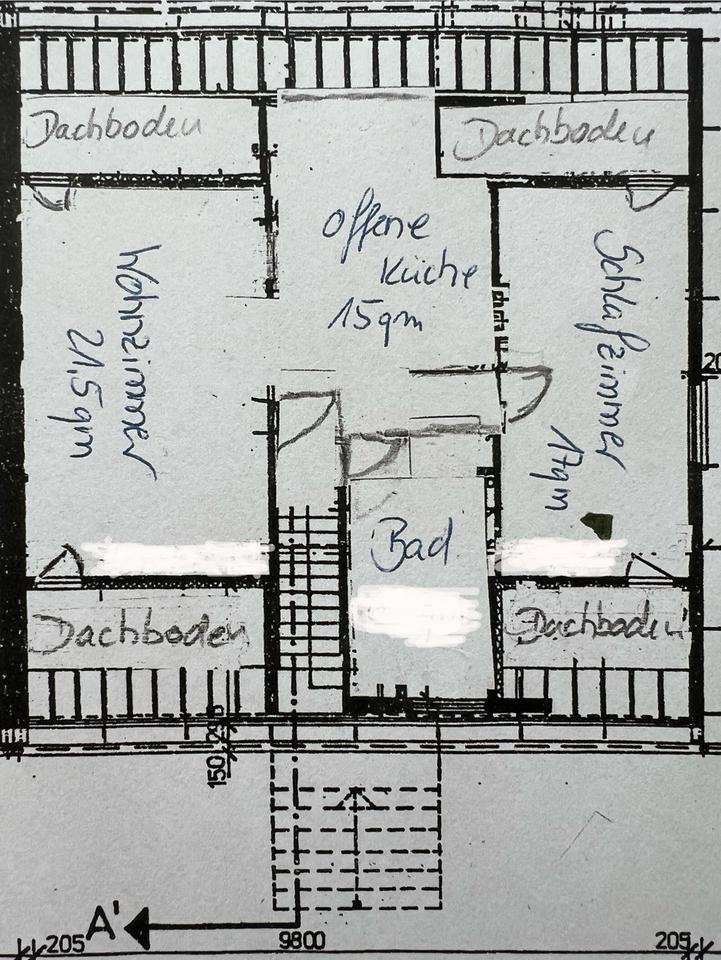 Dachboden
Dachboden
offene
Küche
15qm
Wohnzimmer
21,5qm
Schlafzimmer
17qm
20
Bad
Dachboden
Dachboden
150
A'
205
9800
205